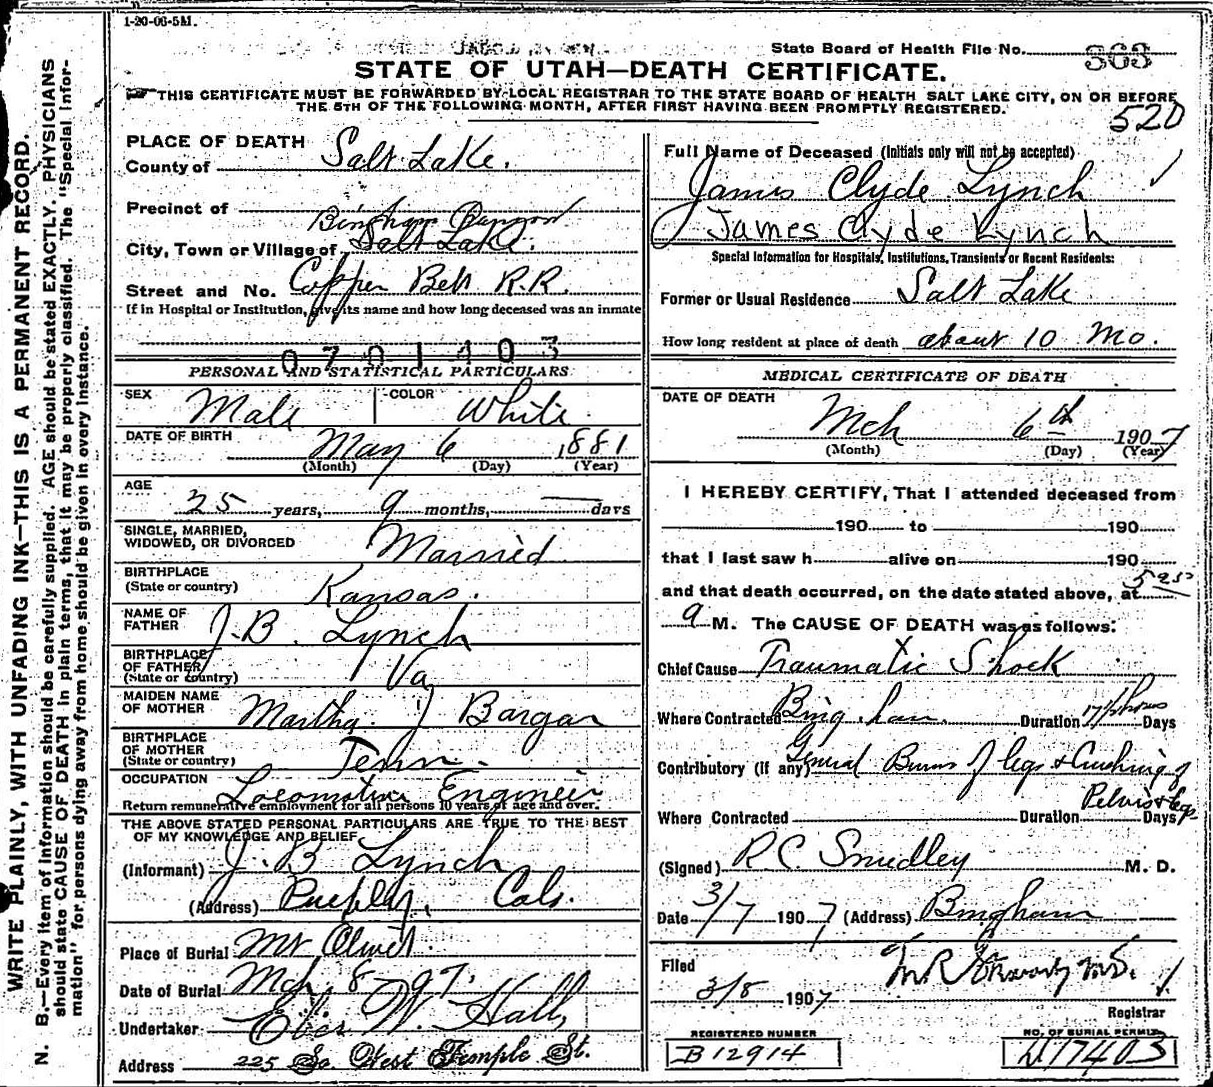 1-20-06-5M.
State Board of Health File No. 363
STATE OF UTAH—DEATH CERTIFICATE.
THIS CERTIFICATE MUST BE FORWARDED BY LOCAL REGISTRAR TO THE STATE BOARD OF HEALTH SALT LAKE CITY, ON OR BEFORE
THE 5TH OF THE FOLLOWING MONTH, AFTER FIRST HAVING BEEN PROMPTLY REGISTERED.
520
WRITE PLAINLY, WITH UNFADING INK—THIS IS A PERMANENT RECORD.
N. B.—Every item of information should be carefully supplied. AGE should be stated EXACTLY. PHYSICIANS
should state CAUSE OF DEATH in plain terms, that it may be properly classified. The "Special Infor-
mation" for persons dying away from home should be given in every instance.
PLACE OF DEATH
County of Salt Lake.
Precinct of
Bingham Canyon
City, Town or Village of Salt Lake.
Street and No. Copper Belt R.R.
If in Hospital or Institution, give its name and how long deceased was an inmate
0701403
PERSONAL AND STATISTICAL PARTICULARS
SEX Male COLOR White
DATE OF BIRTH May 6 1881
(Month) (Day) (Year)
AGE
25 years, 9 months, — days
SINGLE, MARRIED,
WIDOWED, OR DIVORCED Married
BIRTHPLACE
(State or country) Kansas.
NAME OF
FATHER J. B. Lynch
BIRTHPLACE
OF FATHER
(State or country) Va
MAIDEN NAME
OF MOTHER Martha J Bargar
BIRTHPLACE
OF MOTHER
(State or country) Tenn.
OCCUPATION Locomotive Engineer
Return remunerative employment for all persons 10 years of age and over.
THE ABOVE STATED PERSONAL PARTICULARS ARE TRUE TO THE BEST
OF MY KNOWLEDGE AND BELIEF
(Informant) J. B Lynch
(Address) Pueblo, Colo.
Place of Burial Mt Olivet.
Date of Burial Mch. 8 - 97.
Undertaker Eber W. Hall,
Address 225 So. West Temple St.
Full Name of Deceased (Initials only will not be accepted)
James Clyde Lynch
James Clyde Lynch
Special Information for Hospitals, Institutions, Transients or Recent Residents:
Former or Usual Residence Salt Lake
How long resident at place of death about 10 Mo.
MEDICAL CERTIFICATE OF DEATH
DATE OF DEATH
Mch 6th 1907
(Month) (Day) (Year)
I HEREBY CERTIFY, That I attended deceased from
190 to 190
that I last saw h alive on 190
and that death occurred, on the date stated above, at 5
a M. The CAUSE OF DEATH was as follows:
Chief Cause Traumatic Shock
Where Contracted Bingham. Duration Days
Contributory (if any) General Burns of legs & Crushing of
Pelvis & legs
Where Contracted Duration Days
(Signed) R C Smedley M. D.
Date 3/7 1907 (Address) Bingham
Filed
3/8 1907
Registrar
REGISTERED NUMBER
B 12914
NO. OF BURIAL PERMIT
17403